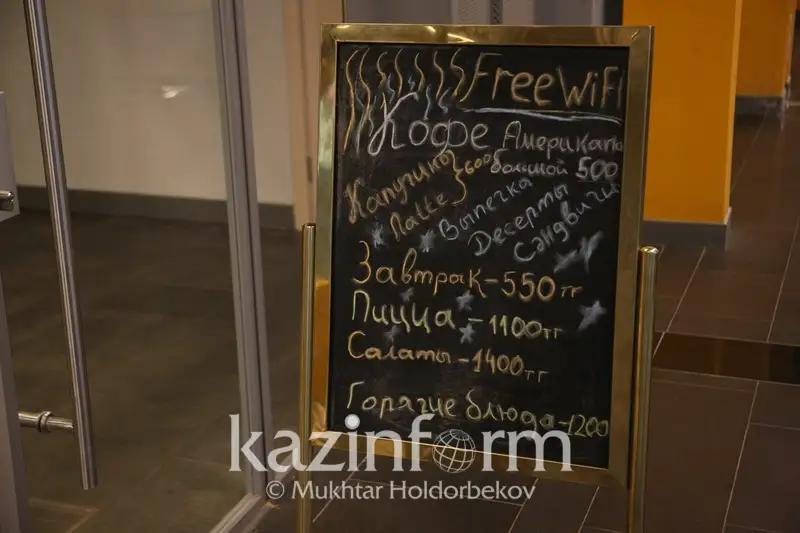 Free WiFi
Кофе Американо
большой 500
Капучино
Латте } 600
Выпечка
Десерты
Сэндвичи
Завтрак - 550 тг
Пицца - 1100 тг
Салаты - 1400 тг
Горячие блюда - 1200
kazinform
© Mukhtar Holdorbekov